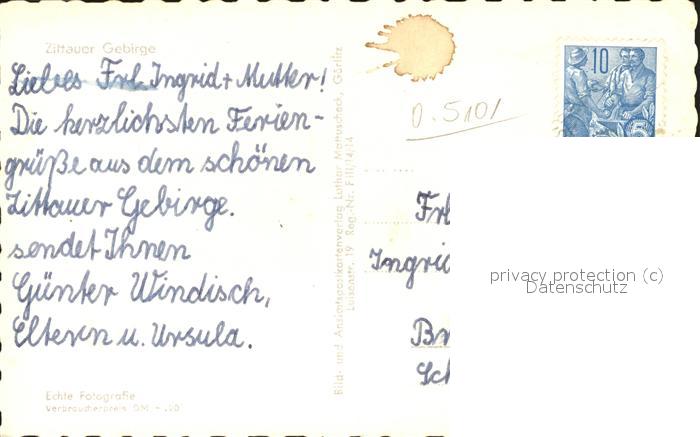 Zittauer Gebirge
Liebes Frl. Ingrid + Mutter!
Die herzlichsten Ferien-
grüße aus dem schönen
Zittauer Gebirge.
sendet Ihnen
Günter Windisch,
Eltern u. Ursula.
Echte Fotografie
Verbraucherpreis DM -,20
Bild- und Ansichtspostkartenverlag Lothar Mattuscheck, Görlitz
Luisenstr. 19 Reg.-Nr. F III/14/14
0.5101
10
5
Frl
Ingrid
Br
Sch
privacy protection (c)
Datenschutz